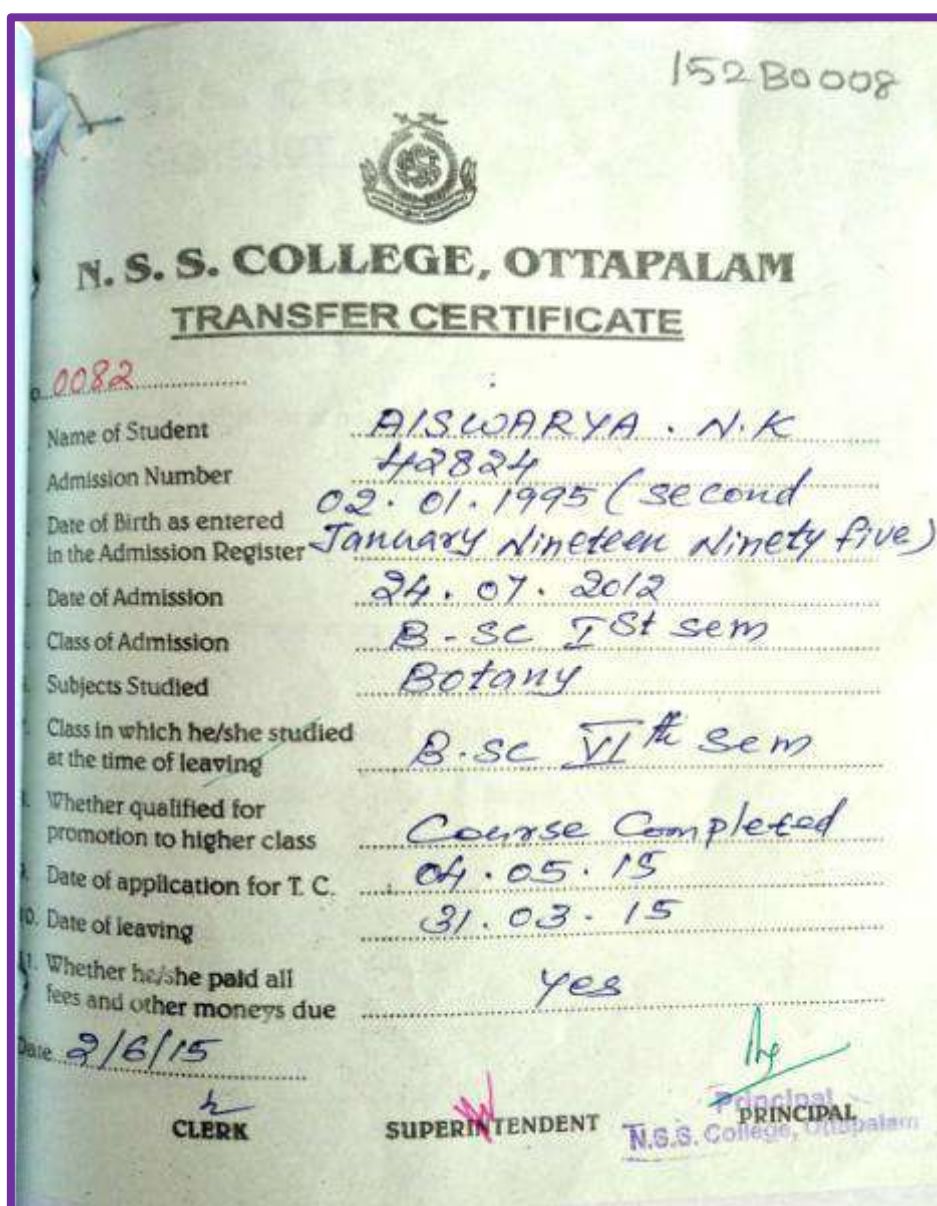 152B0008
N. S. S. COLLEGE, OTTAPALAM
TRANSFER CERTIFICATE
o. 0082
Name of Student AISWARYA . N.K
Admission Number 42824
Date of Birth as entered 02.01.1995 (second
in the Admission Register January Nineteen Ninety five)
Date of Admission 24.07.2012
Class of Admission B-SC Ist sem
Subjects Studied Botany
Class in which he/she studied
at the time of leaving B.SC VIth sem
Whether qualified for
promotion to higher class Course Completed
Date of application for T. C. 04.05.15
10. Date of leaving 31.03.15
11. Whether he/she paid all
fees and other moneys due yes
Date 2/6/15
CLERK SUPERINTENDENT PRINCIPAL
Principal
N.S.S. College, Ottapalam